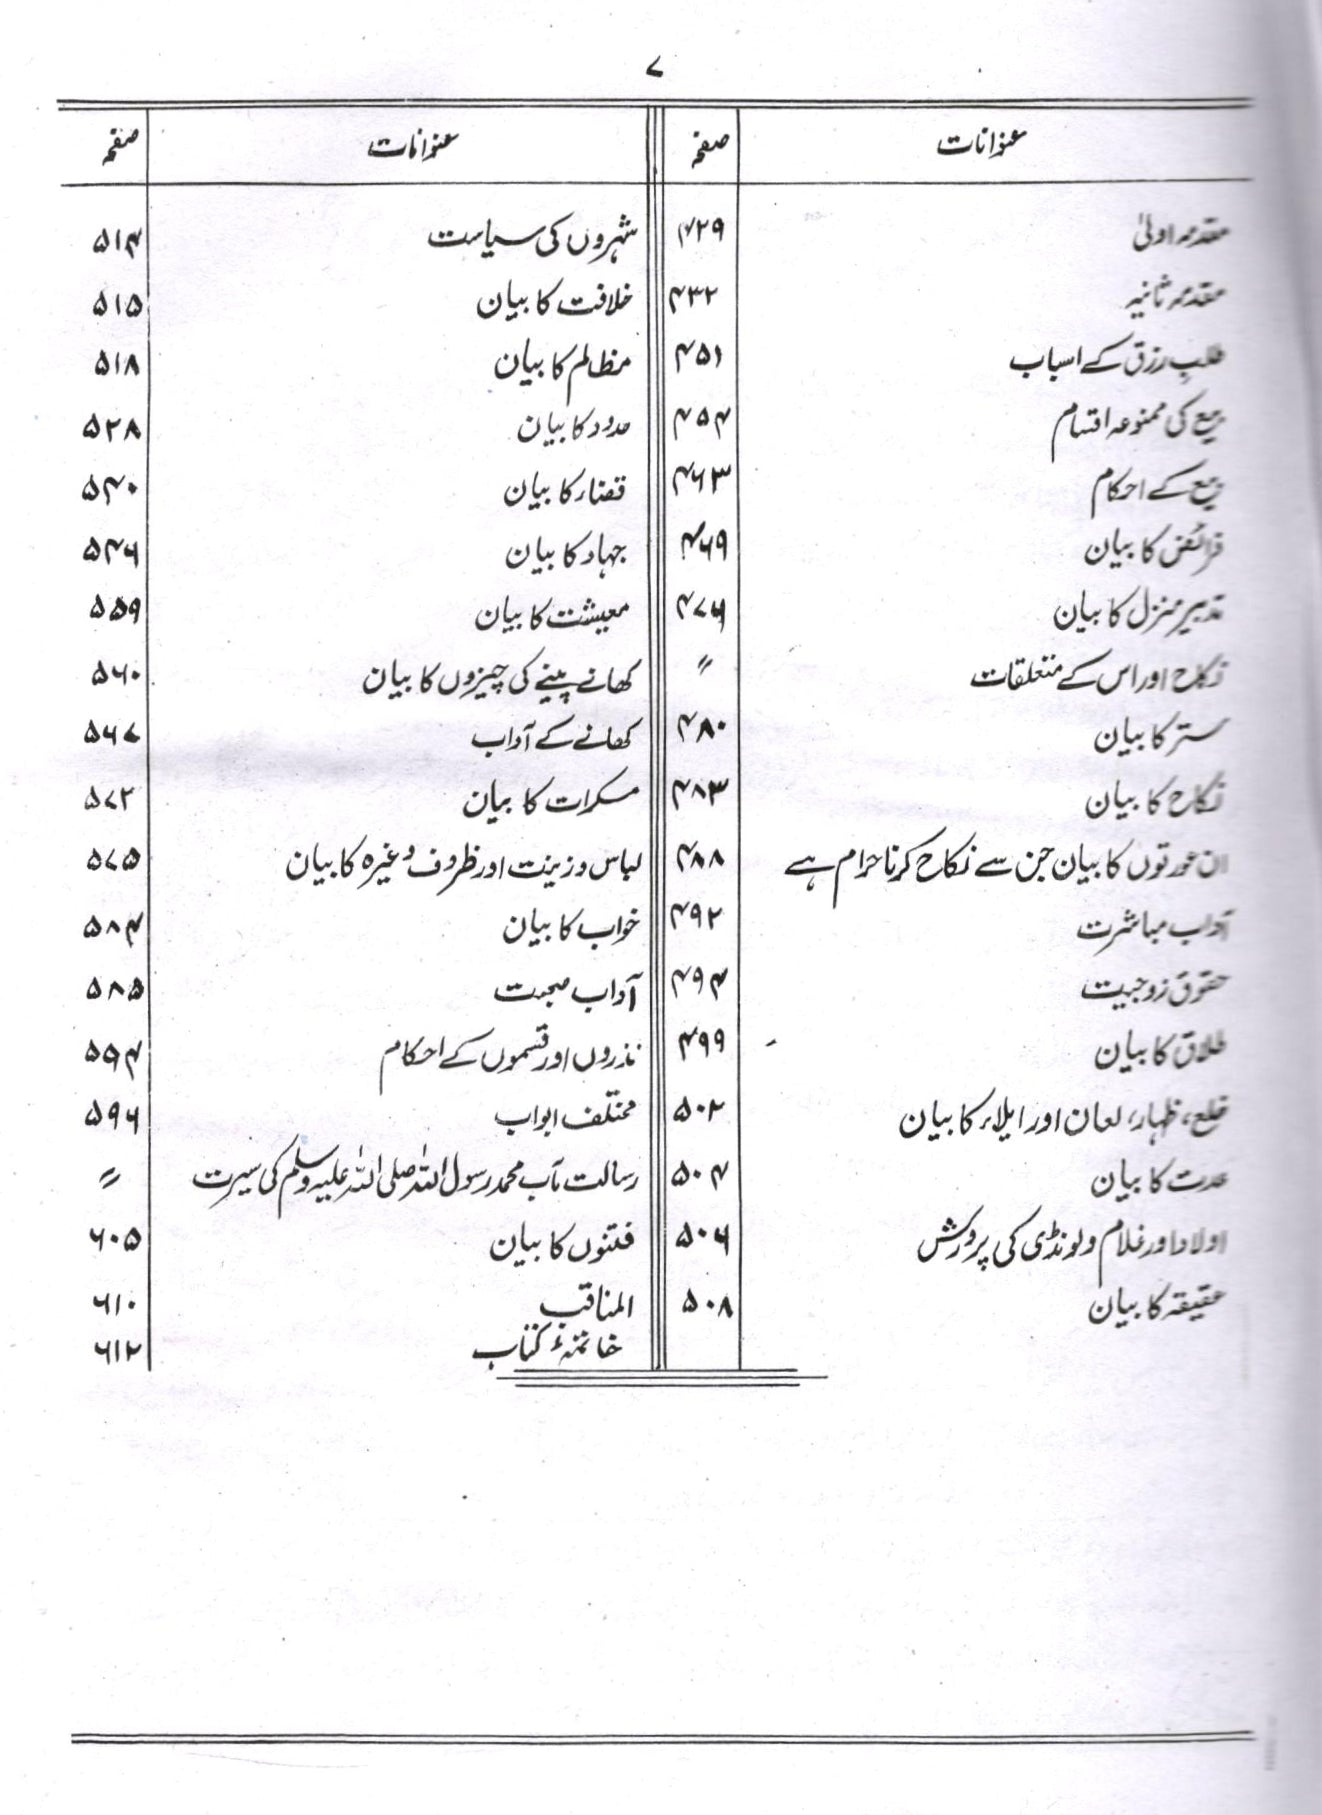 ۷
عنوانات صفحہ
مقدمہ اولیٰ ۴۲۹
مقدمہ ثانیہ ۴۳۲
طلبِ رزق کے اسباب ۴۵۱
بیع کی ممنوعہ اقسام ۴۵۴
بیع کے احکام ۴۶۳
فرائض کا بیان ۴۶۹
تدبیر منزل کا بیان ۴۷۶
نکاح اور اس کے متعلقات ״
ستر کا بیان ۴۸۰
نکاح کا بیان ۴۸۳
ان عورتوں کا بیان جن سے نکاح کرنا حرام ہے ۴۸۸
آداب مباشرت ۴۹۲
حقوق زوجیت ۴۹۴
طلاق کا بیان ۴۹۹
خلع، ظہار، لعان اور ایلاء کا بیان ۵۰۲
عدت کا بیان ۵۰۴
اولاد اور غلام و لونڈی کی پرورش ۵۰۶
عقیقہ کا بیان ۵۰۸
عنوانات صفحہ
شہروں کی سیاست ۵۱۴
خلافت کا بیان ۵۱۵
مظالم کا بیان ۵۱۸
حدود کا بیان ۵۲۸
قضاء کا بیان ۵۴۰
جہاد کا بیان ۵۴۶
معیشت کا بیان ۵۵۹
کھانے پینے کی چیزوں کا بیان ۵۶۰
کھانے کے آداب ۵۶۷
مسکرات کا بیان ۵۷۲
لباس و زینت اور ظروف وغیرہ کا بیان ۵۷۵
خواب کا بیان ۵۸۴
آداب صحبت ۵۸۵
نذروں اور قسموں کے احکام ۵۹۴
مختلف ابواب ۵۹۶
رسالت مآب محمد رسول اللہ صلی اللہ علیہ وسلم کی سیرت ״
فتنوں کا بیان ۶۰۵
المناقب ۶۱۰
خاتمۂ کتاب ۶۱۲